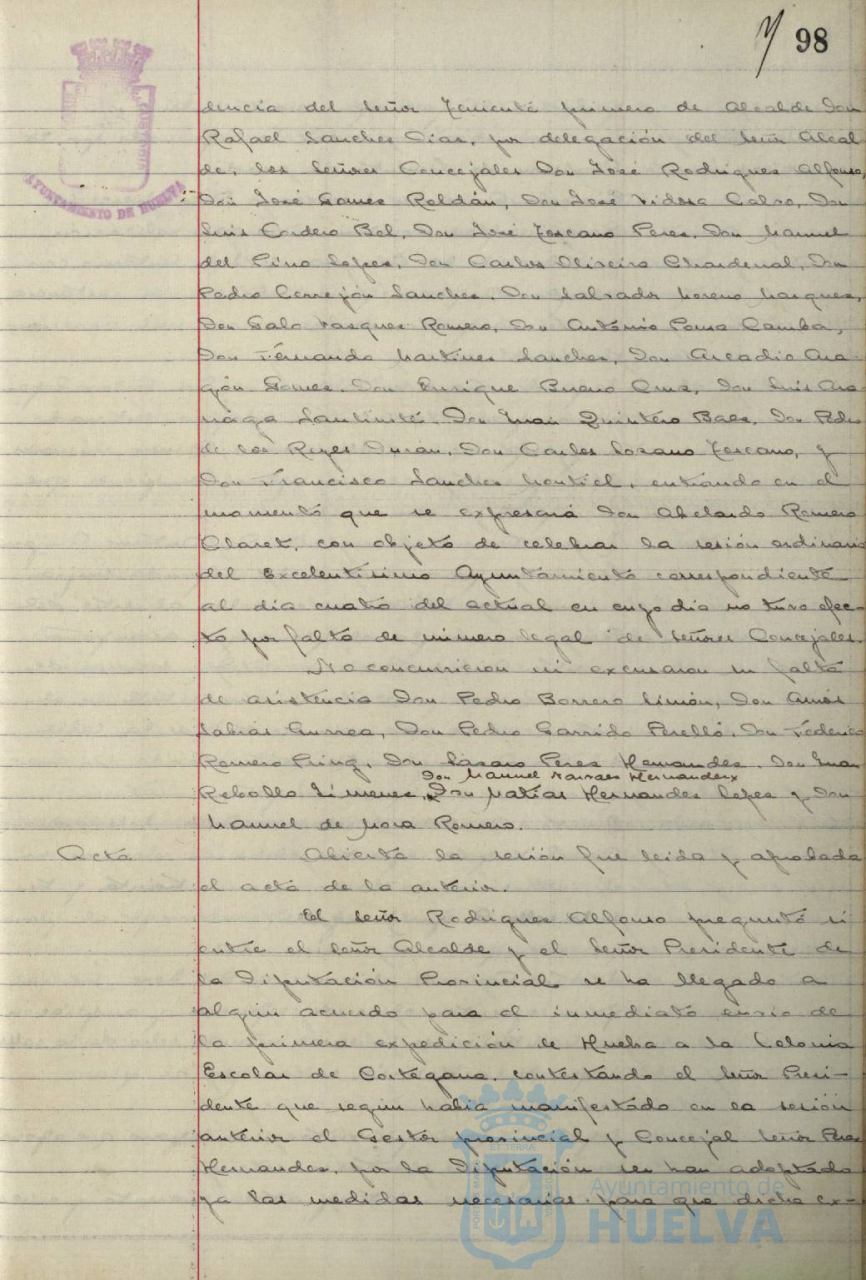 98
AYUNTAMIENTO DE HUELVA
dencia del Señor Teniente primero de Alcalde Don
Rafael Sanchez Diaz, por delegación del Señor Alcal
de, los Señores Concejales Don José Rodriguez Alfonso,
Don José Gomez Roldán, Don José Vidosa Calvo, Don
Luis Cordero Bel, Don José Toscano Perez, Don Manuel
del Pino Lopez, Don Carlos Oliveira Chardenal, Don
Pedro Cerrejón Sanchez, Don Salvador Moreno Marquez,
Don Galo Vazquez Romero, Don António Pousa Camba,
Don Fernando Martinez Sanchez, Don Arcadio Ara-
gón Gomez, Don Enrique Bueno Cruz, Don Luis
Don Juan Quintero Baez, Don Pedro
de los Reyes Duran, Don Carlos Lozano Toscano, y
Don Francisco Sanchez Montiel, entrando en el
momento que se expresará Don Abelardo Romero
Claret, con objeto de celebrar la sesión ordinaria
del Excelentisimo Ayuntamiento correspondiente
al dia cuatro del actual en cuyo dia no tuvo efec-
to por falta de número legal de Señores Concejales.
No concurrieron ni excusaron su falta
de asistencia Don Pedro Borrero Limón, Don Amós
Sabrás Gurrea, Don Pedro Garrido Perelló, Don Federico
Romero Don Lazaro Perez Hernandez, Don Juan
Don Manuel Narvaez Hernandez
Rebollo Jimenez, Don Matias Hernandez Lopez y Don
Manuel de Mora Romero.
Acta
Abierta la sesión fue leida y aprobada
el acta de la anterior.
El Señor Rodriguez Alfonso preguntó si
entre el Señor Alcalde y el Señor Presidente de
la Diputación Provincial se ha llegado a
algún acuerdo para el inmediato envio de
la primera expedición de Huelva a la Colonia
Escolar de Cortegana, contestando el Señor Presi-
dente que según habia manifestado en la sesión
anterior el Gestor provincial y Concejal Señor Perez
Hernandez, por la Diputación se han adoptado
ya las medidas necesarias para que dicha ex-
Ayuntamiento de
HUELVA